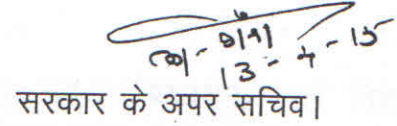 13-4-15
सरकार के अपर सचिव।